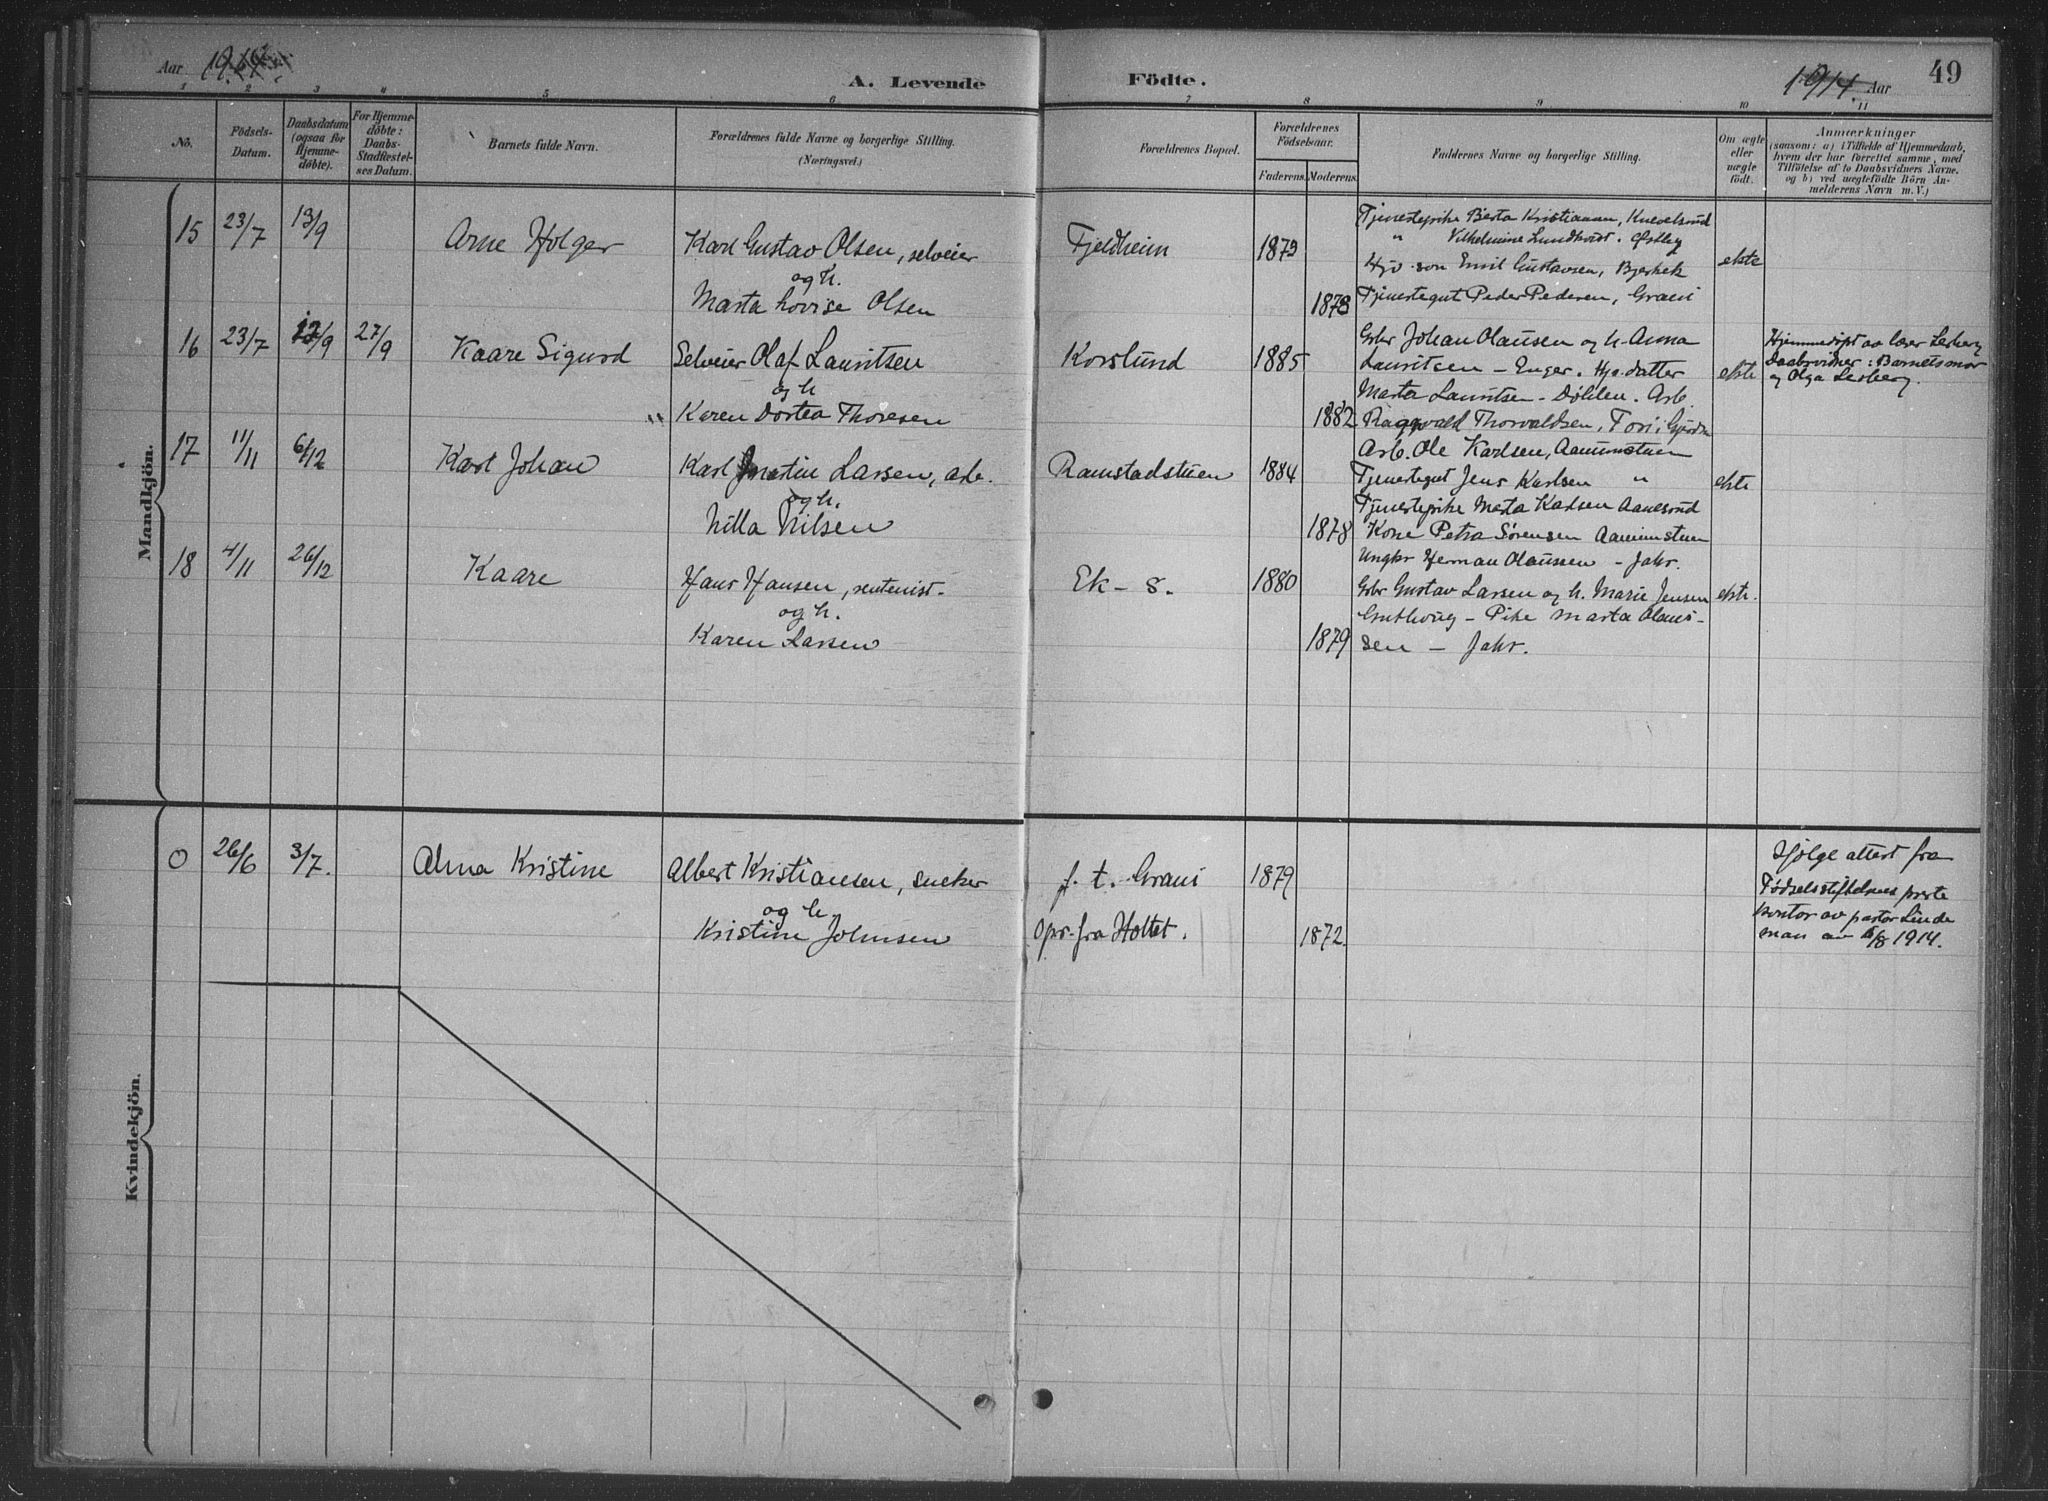 Aar
A. Levende
Födte.
1914. Aar
49
1 2 3 4 5 6 7 8 9 10 11
No.
Födsels-Datum.
Daabsdatum (ogsaa for Hjemmedöbte).
For Hjemmedöbte: Daabs-Stadfæstelses Datum.
Barnets fulde Navn.
Forældrenes fulde Navne og borgerlige Stilling.
(Næringsvei.)
Forældrenes Bopæl.
Forældrenes Födselsaar.
Faderens. Moderens.
Faddernes Navne og borgerlige Stilling.
Om ægte eller uægte födt.
Anmærkninger
(saasom: a) i Tilfælde af Hjemmedaab,
hvem der har forrettet samme, med
Tilföielse af to Daabsvidners Navne.
og b) ved uægtefödte Börn An-
melderens Navn m. V.)
Mandkjön.
15 23/7 13/9 Arne Holger
Karl Gustav Olsen, selveier
og h.
Marta Lovise Olsen
Fjeldheim
1873
Tjenestepike Berta Kristiansen, Knevelsrud
" Vilhelmine Lundkvist. Østby
Hjv. søn Emil Gustavsen, Bjerkek
1873 Tjenestegut Peder Pedersen, Graui
ekte
16 23/7 13/9 27/9 Kaare Sigurd
Selveier Olaf Lauritsen
og h
" Karen Dortea Thoresen
Korslund
1885
Gbr Johan Olausen og h. Anna
Lauritsen – Enger. Hjv. datter
Marta Lauritsen – Dølden. Arb.
1882 Ragnvald Thorvaldsen, Tosi,
ekte
Hjemmedøpt av lærer Lesberg
Daabsvidner: Barnets mor
og Olga Lesberg.
17 11/11 6/12 Karl Johan
Karl Martin Larsen, arb.
og h.
Nilla Nilsen
Ramstadstuen
1884
Arb. Ole Karlsen, Aamunstuen
Tjenestegut Jens Karlsen "
Tjenestepike Marta Karlsen Aanesrud
1878 Kone Petra Sørensen Aamunstuen
ekte
18 4/11 26/12 Kaare
Hans Hansen, rentenist
og h.
Karen Larsen
Ek – s.
1880
Ungkr Herman Olaussen – Jahr.
Gbr Gustav Larsen og h. Marie Jensen
– Pike Marta Olaus-
1879 sen – Jahr.
ekte.
Kvindekjön.
0 26/6 3/7. Alma Kristine
Albert Kristiansen, sneker
og h.
Kristine Johnsen
f. t. Graui
opr. fra Holtet.
1879
1872.
Ifølge attest fra
Fødselsstiftelsens preste
kontor av pastor Linde
man av 5/8 1914.